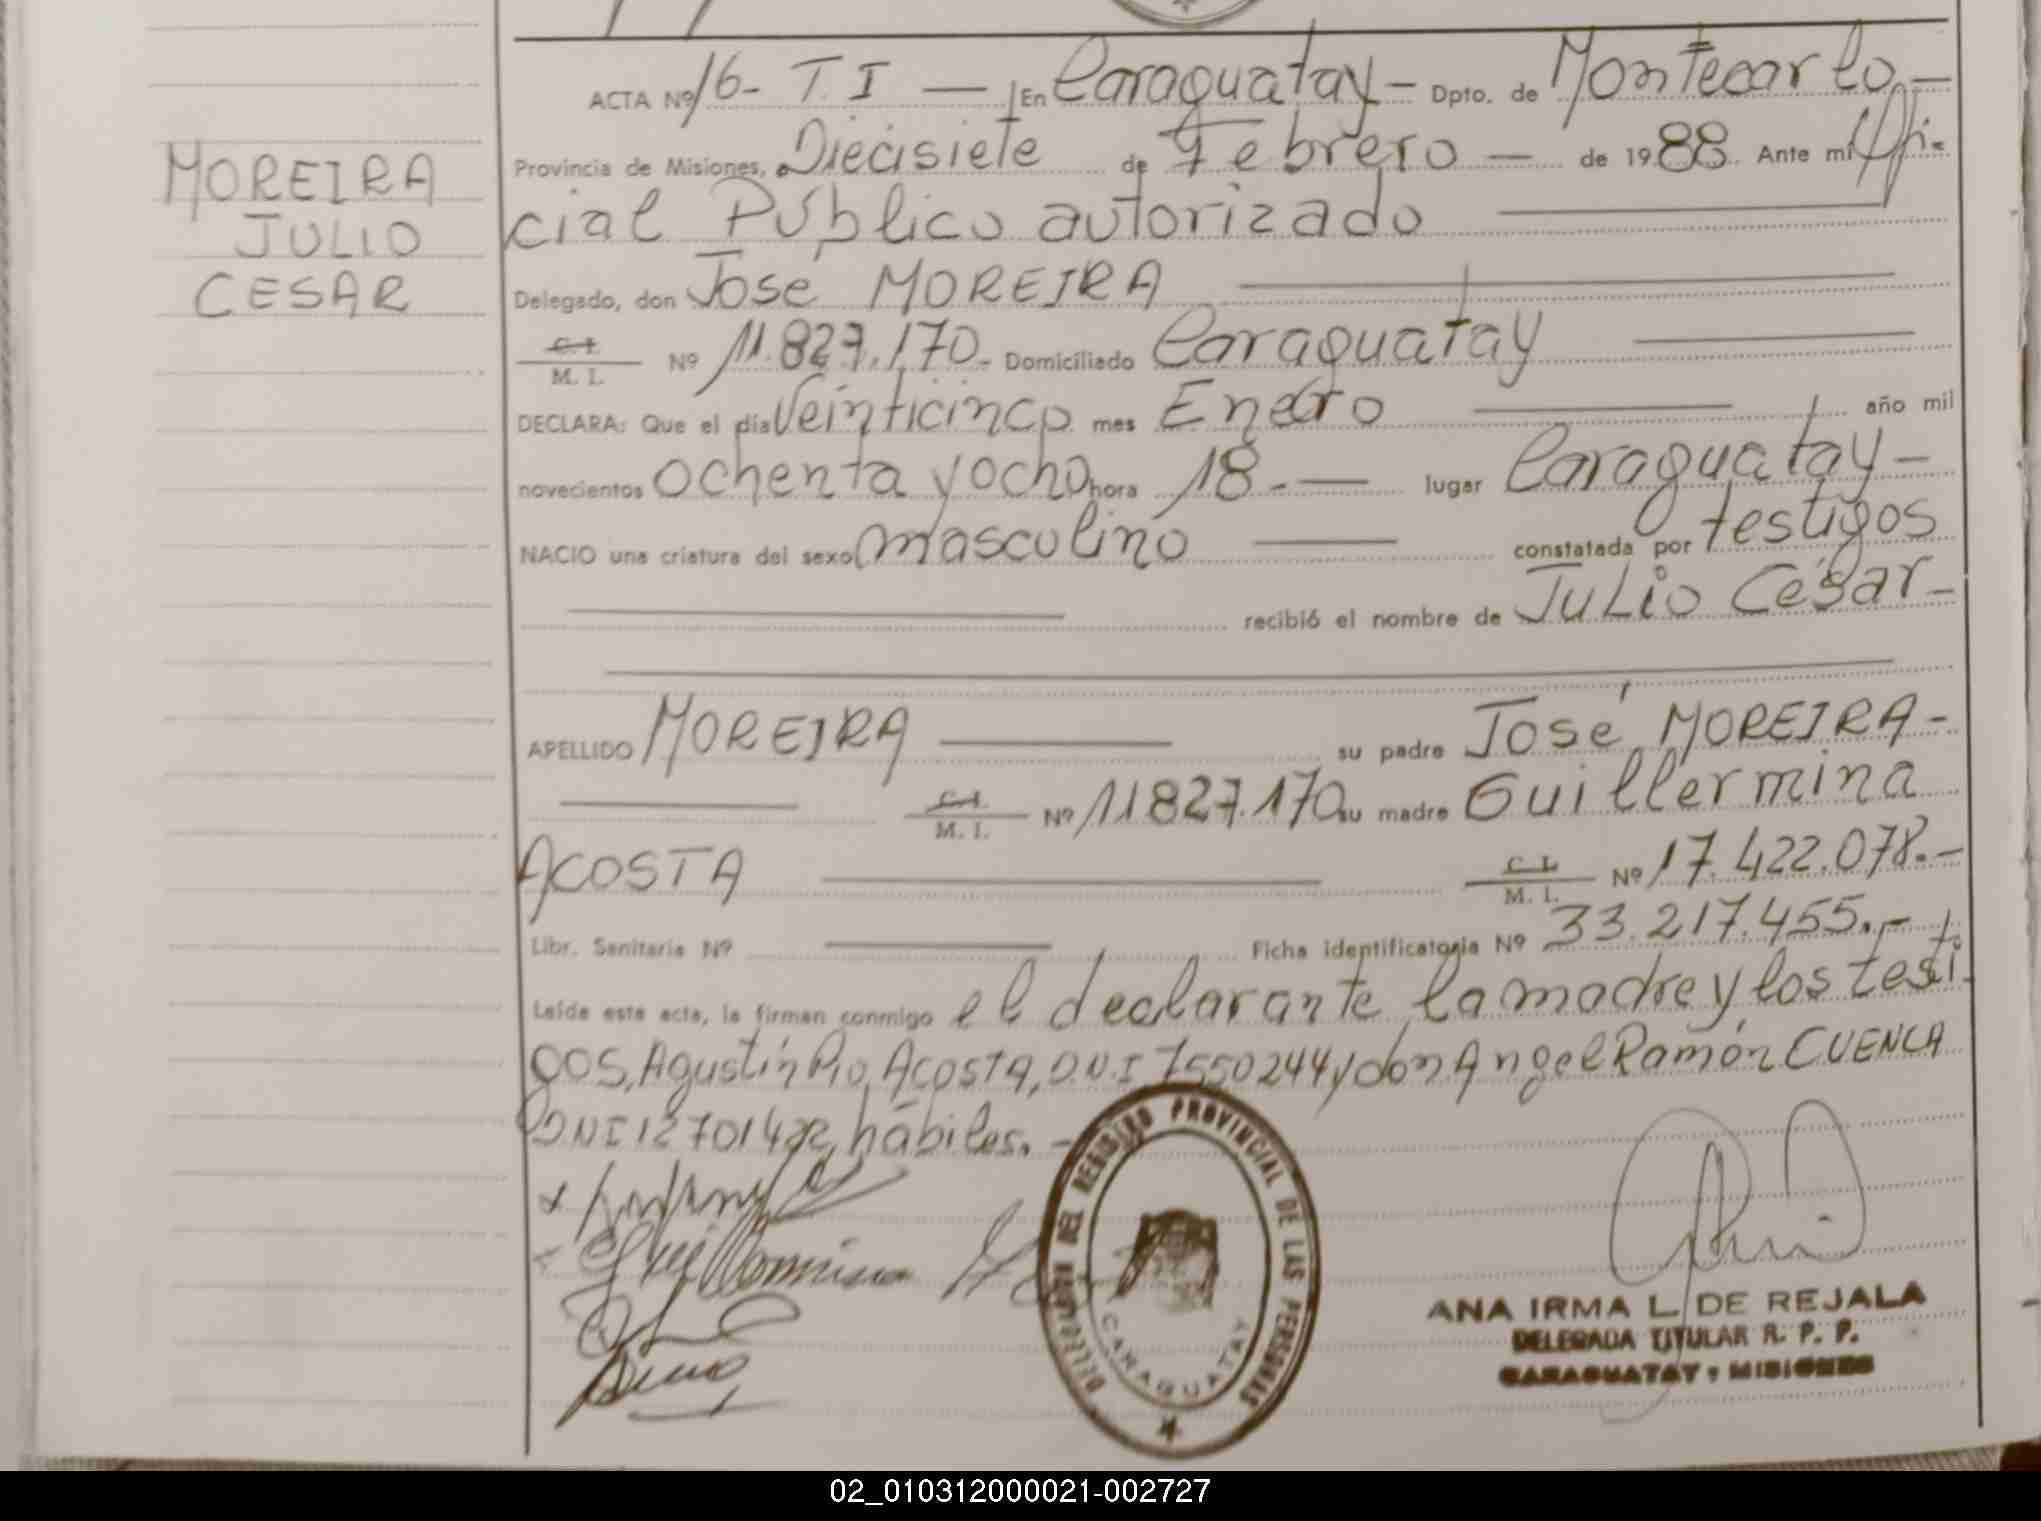 MOREIRA
JULIO
CESAR
ACTA Nº 16- T. I — En Caraguatay - Dpto. de Montecarlo -
Provincia de Misiones, a Diecisiete de Febrero — de 1988. Ante mi Ofi-
cial Público autorizado
Delegado, don José MOREIRA
C. I.
M. I. Nº 11.827.170.- Domiciliado Caraguatay
DECLARA: Que el día Veinticinco mes Enero año mil
novecientos ochenta y ocho hora 18.- — lugar Caraguatay -
NACIO una criatura del sexo masculino constatada por testigos
recibió el nombre de Julio César -
APELLIDO MOREIRA su padre José MOREIRA -
C. I.
M. I. Nº 11827.170 su madre Guillermina
ACOSTA C. I.
M. I. Nº 17.422.078.-
Libr. Sanitaria Nº Ficha identificatoria Nº 33.217.455.-
Leída esta acta, la firman conmigo el declarante la madre y los testi-
gos, Agustín Pio ACOSTA, D.N.I 7550244 y don Angel Ramón CUENCA
DNI 12701422, hábiles. -
Guillermina
DELEGACION DEL REGISTRO PROVINCIAL DE LAS PERSONAS
CARAGUATAY
ANA IRMA L. DE REJALA
DELEGADA TITULAR R. P. P.
CARAGUATAY - MISIONES
02_010312000021-002727